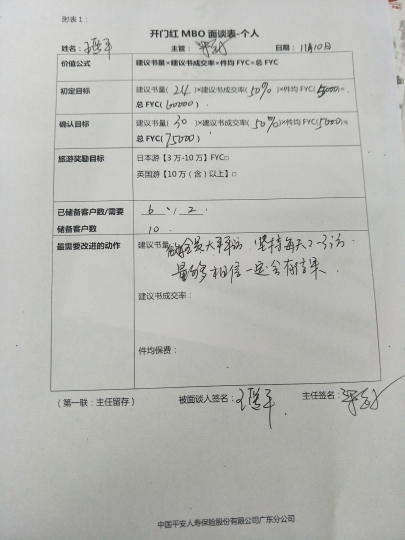 附表1：
开门红 MBO 面谈表-个人
姓名： 主管： 日期：11月10日
价值公式 建议书量×建议书成交率×件均 FYC=总 FYC
初定目标 建议书量(24)×建议书成交率(50%)×件均 FYC(5000)=
总 FYC(60000)
确认目标 建议书量(30)×建议书成交率(50%)×件均 FYC(5000)=
总 FYC(75000)
旅游奖励目标 日本游【3 万-10 万】FYC□
英国游【10 万（含）以上】□
已储备客户数/需要 6、2
储备客户数 10
最需要改进的动作 建议书量： 坚持每天2-3访
量够相信一定会有结果.
建议书成交率：
件均保费：
（第一联：主任留存） 被面谈人签名： 主任签名：
中国平安人寿保险股份有限公司广东分公司